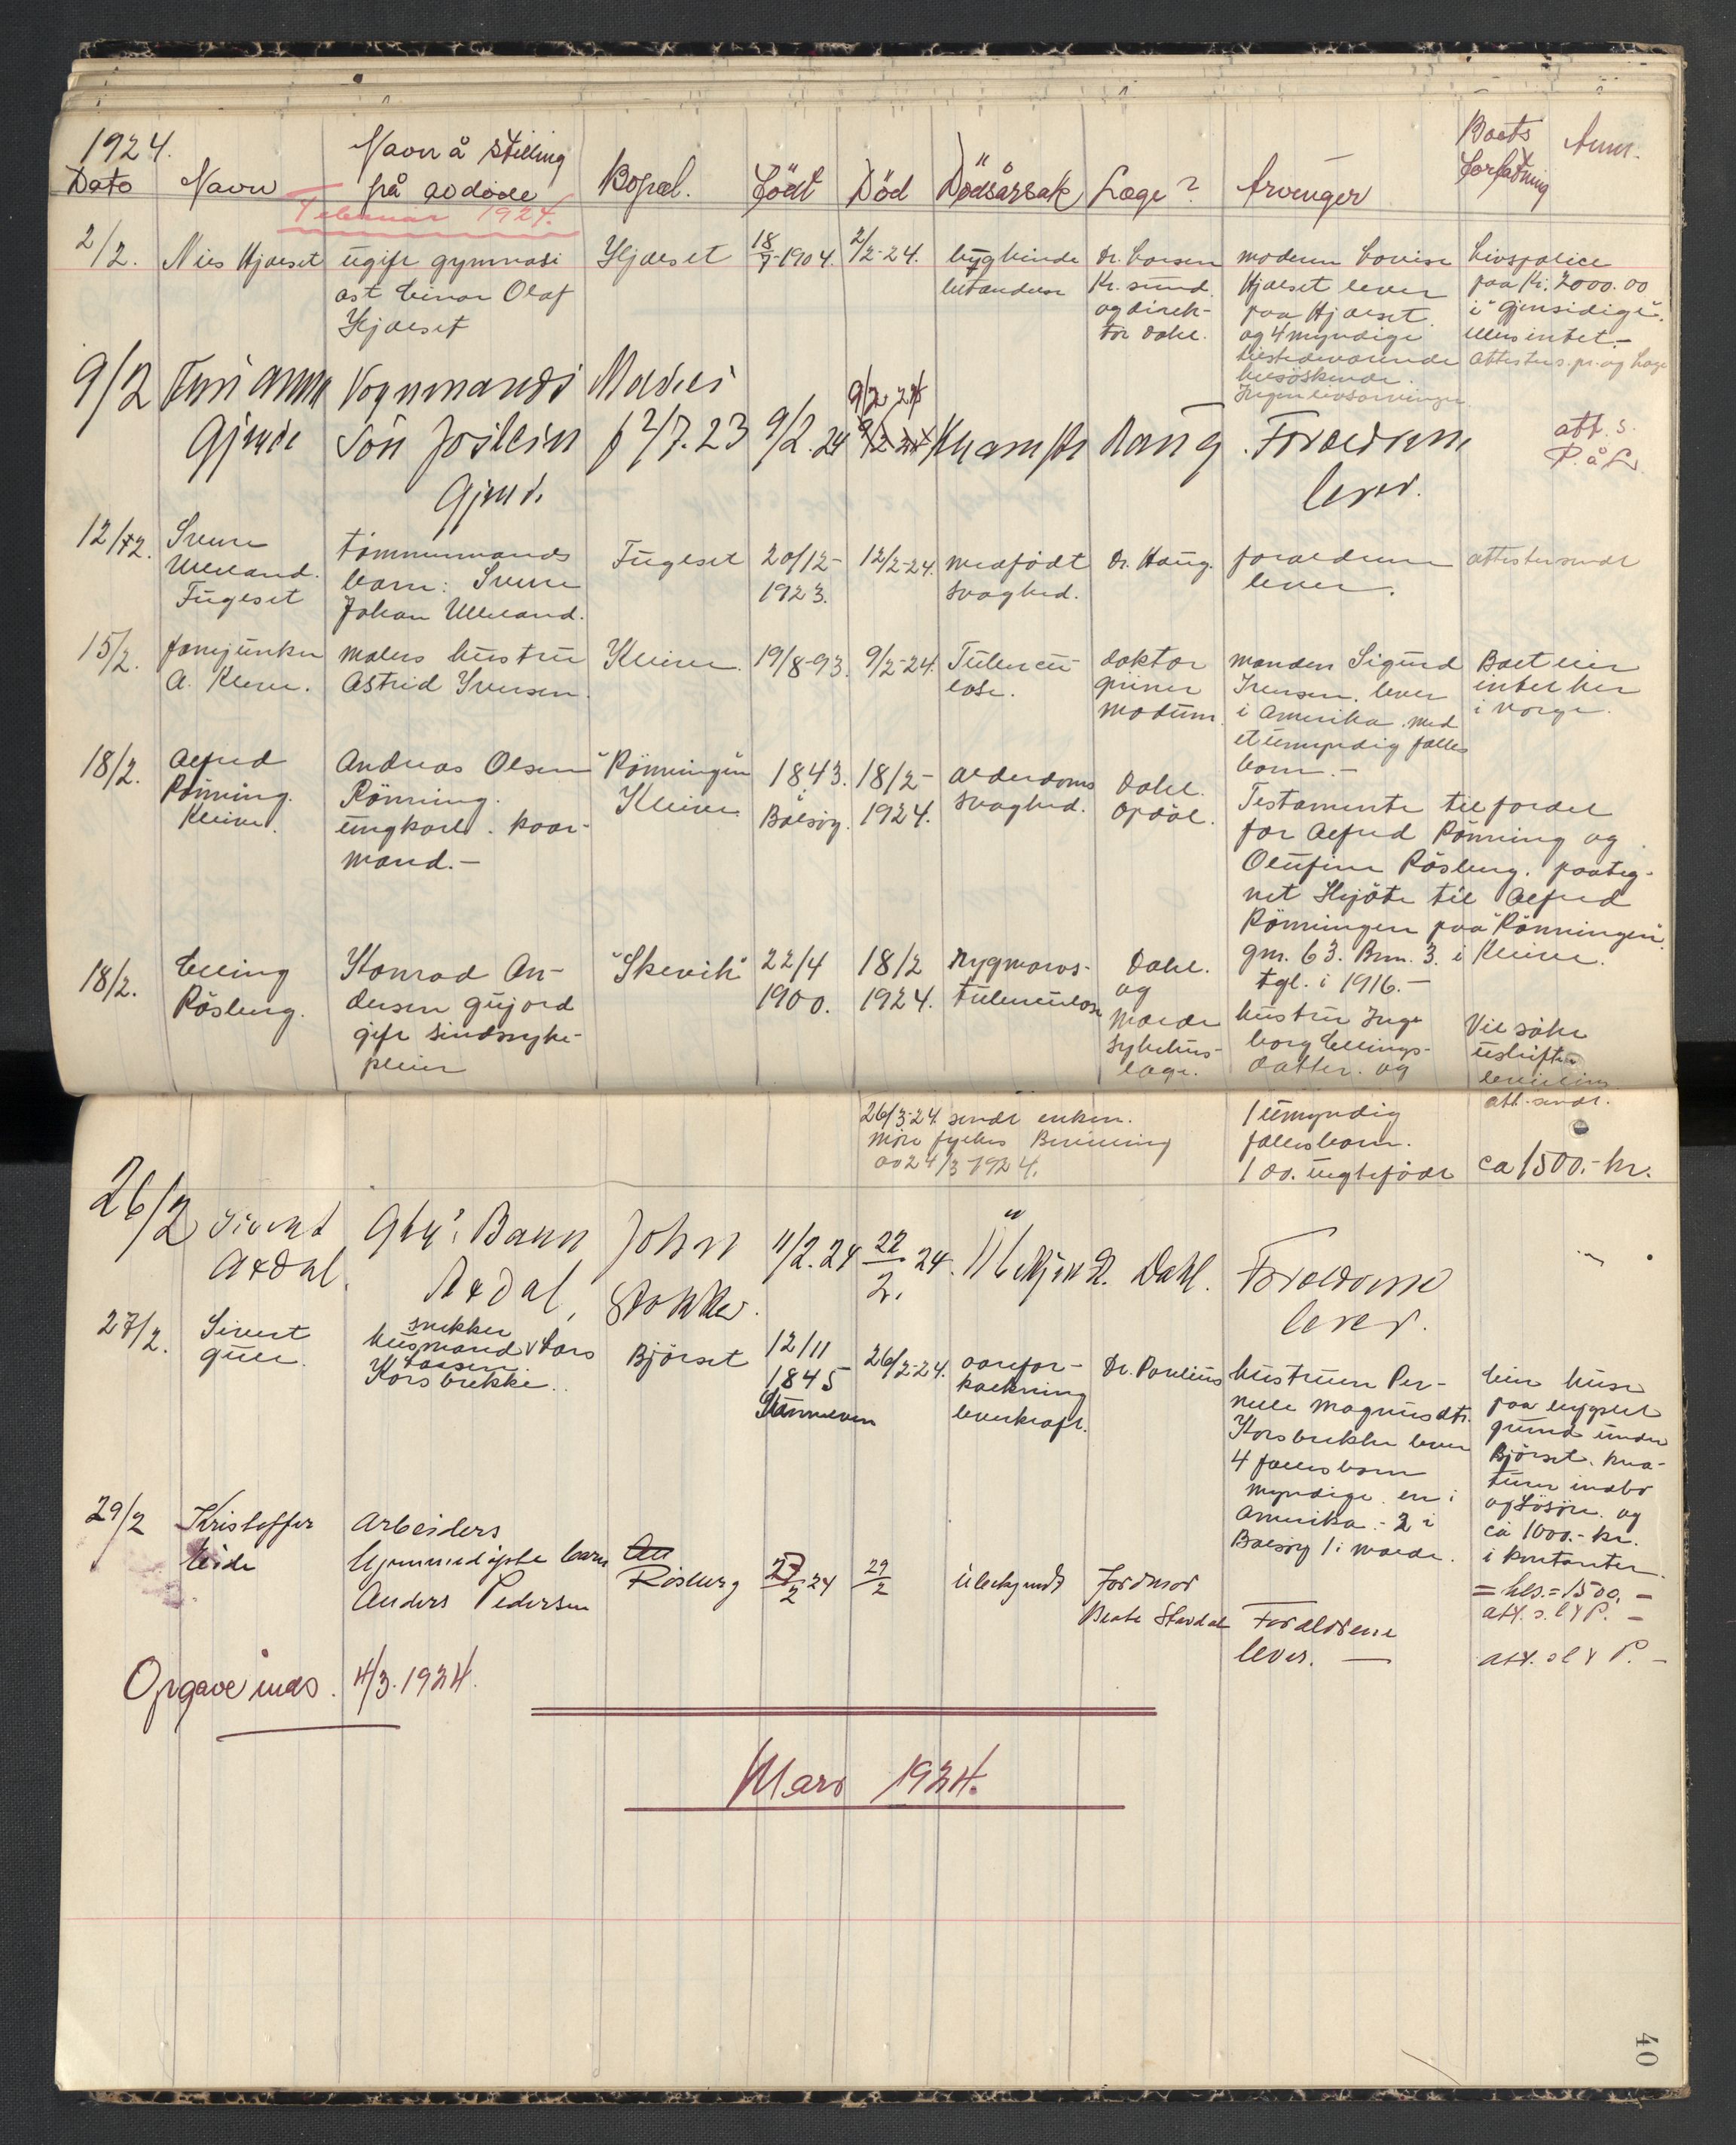 1924.
Dato
Navn
Navn å Stilling
på avdöde
Bopæl.
Född
Död
Dödsårsak
Læge?
Arvinger
Boets
forfatning
Anm.
Februar 1924.
2/2.
Nils Hjælset
ugift gymnasi
ast Einar Olaf
Hjælset
Hjælset
18/7-1904.
2/2-24.
bughinde
betændelse
Dr. Larsen
Kr. sund.
og direk-
tør Dahl.
moderen Lovise
Hjælset lever
paa Hjælset.
og 4 myndige
tilstedeværende
helsöskende.
Ingen livsarvinger
Livspolice
paa Kr. 2000.00
i "Gjensidige".
ellers intet.-
attester s. pr. og Læge
9/2
Anna
Gjende
Vognmands
Sön Jostein
Gjende.
Molde
f 2/7.23
9/2.24
9/2 24
9/2 24
Krampe
Haug.
Forældrene
lever.
att. s.
P. å L.
12/2.
Sverre
Ulleland.
Fugelset
tömmermands
barn: Sverre
Johan Ulleland.
Fugelset
20/12-
1923.
12/2-24.
medfödt
svaghed.
Dr. Haug.
forældrene
lever.
attester sendt
15/2.
fanejunker
A. Kleive.
malers hustru
Astrid Iversen.
Kleive.
19/8-93.
9/2-24.
Tubercu
lose.
doktor
Grüner
Modum.
manden Sigurd
Iversen. lever
i Amerika. med
et umyndig fælles
barn.-
Boet eier
intet her
i Norge.
18/2.
Alfred
Rönning.
Kleive.
Andreas Olsen
Rönning.
ungkarl. kaar-
mand.-
"Rönningen
Kleive.
1843.
i
Bolsöy.
18/2-
1924.
alderdoms
svaghed.
Dahl.
Opdöl.
Testamente til fordel
for Alfred Rönning og
Olufine Rösberg. paateg-
net Skjöte til Alfred
Rönningen paa "Rönningen"
gnr. 63. Brn. 3. i Kleive.
tgl. i 1916.-
18/2.
Elling
Rösberg.
Konrad An-
dersen Gujord
gift sindssyke-
pleier
"Skevik"
22/4
1900.
18/2
1924.
rygmarvs-
tuberculose
Dahl.
og
Molde
Sykehus-
læge.
hustru Inge
borg Ellings-
datter. og
1 umyndig
fællesbarn.
1 do. uegtefödt
Vil söke
uskifte
bevilling
att. sendt.
ca 1500.- kr.
26/3-24. sendt enken.
Möre fylkes Bevilling
av 24/3 1924.
26/2
Sivert
Axdal.
Gbr: Barn
Axdal,
John
Stokke.
11/2.24
22/2. 24.
Ubekjendt.
Dahl.
Forældrene
lever.
27/2.
Sivert
Gule.
snekker
husmand & Lars
Larsen
Korsbrekke..
Björset
12/11
1845
26/2-24.
aarefor-
kalkning
leverkræft.
Dr. Paulius
hustruen Per-
nelle Magnusdtr.
Korsbrekke lever
4 fællesbarn
myndige. en i
Amerika.- 2 i
Bolsöy 1 i Molde.
Eier huse
paa bygslet
grund under
Björset. krea-
turer indbo
og lösöre. og
ca 1000.- kr.
i kontanter.
= hls. = 1500.-
att. s. l & P. -
29/2
Kristoffer
Eide
Arbeiders
hjemmedöpte barn
Anders Pedersen
Rösberg
27/2 24
29/2
Ubekjendt
Jordmor
Beate Stavdal
Forældrene
lever. -
att. s l & P. -
Opgave inds. 4/3. 1924.
Mars 1924.
40